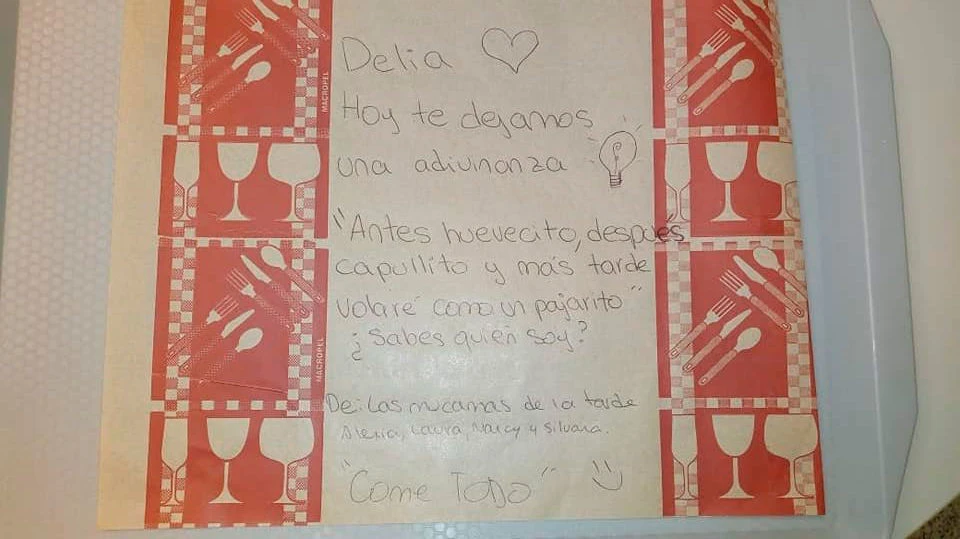 Delia
Hoy te dejamos
una adivinanza
"Antes huevecito, después
capullito y más tarde
volaré como un pajarito"
¿Sabes quien soy?
De: Las mucamas de la tarde
Laura, Nancy y Silvana.
"Come Todo"
MACROPEL
MACROPEL